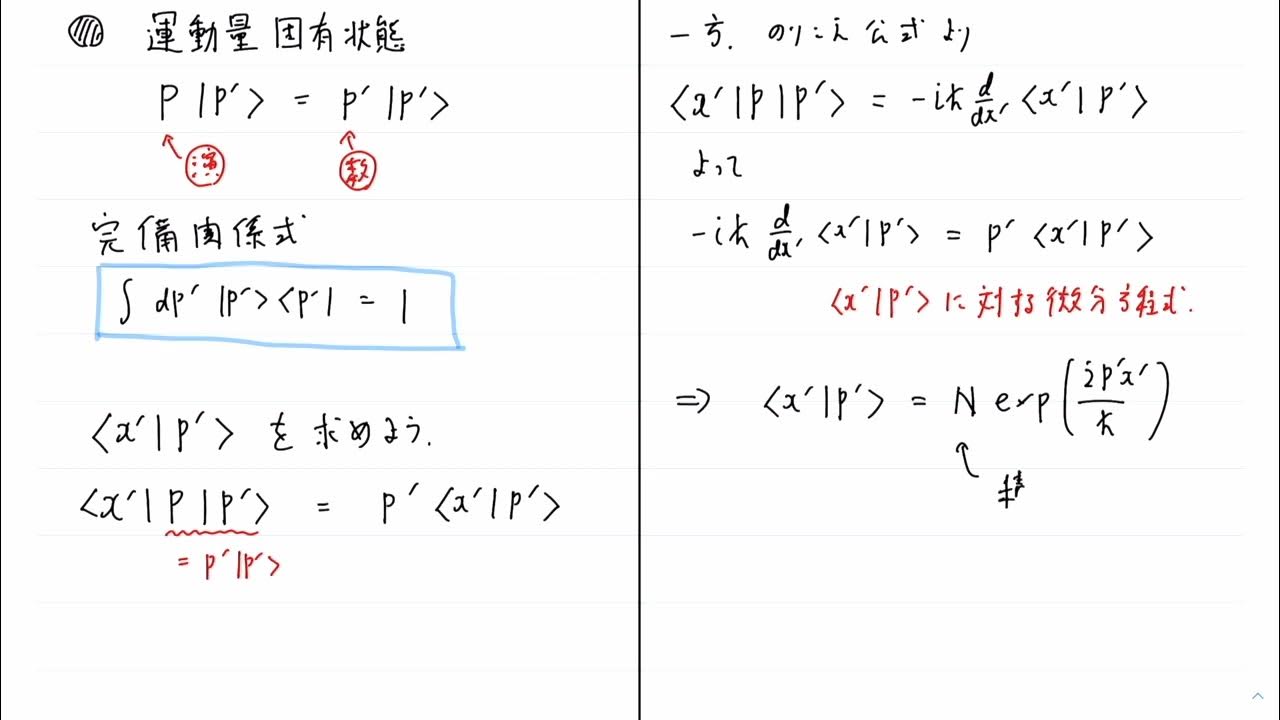 運動量固有状態
P |p′> = p′ |p′>
演 数
完備関係式
∫ dp′ |p′><p′| = 1
<x′|p′> を求めよう.
<x′| p |p′> = p′ <x′|p′>
= p′|p′>
一方. のりこえ公式より
<x′|p|p′> = -iℏ d/dx′ <x′|p′>
よって
-iℏ d/dx′ <x′|p′> = p′ <x′|p′>
<x′|p′> に対する微分方程式.
⇒ <x′|p′> = N exp(ip′x′/ℏ)